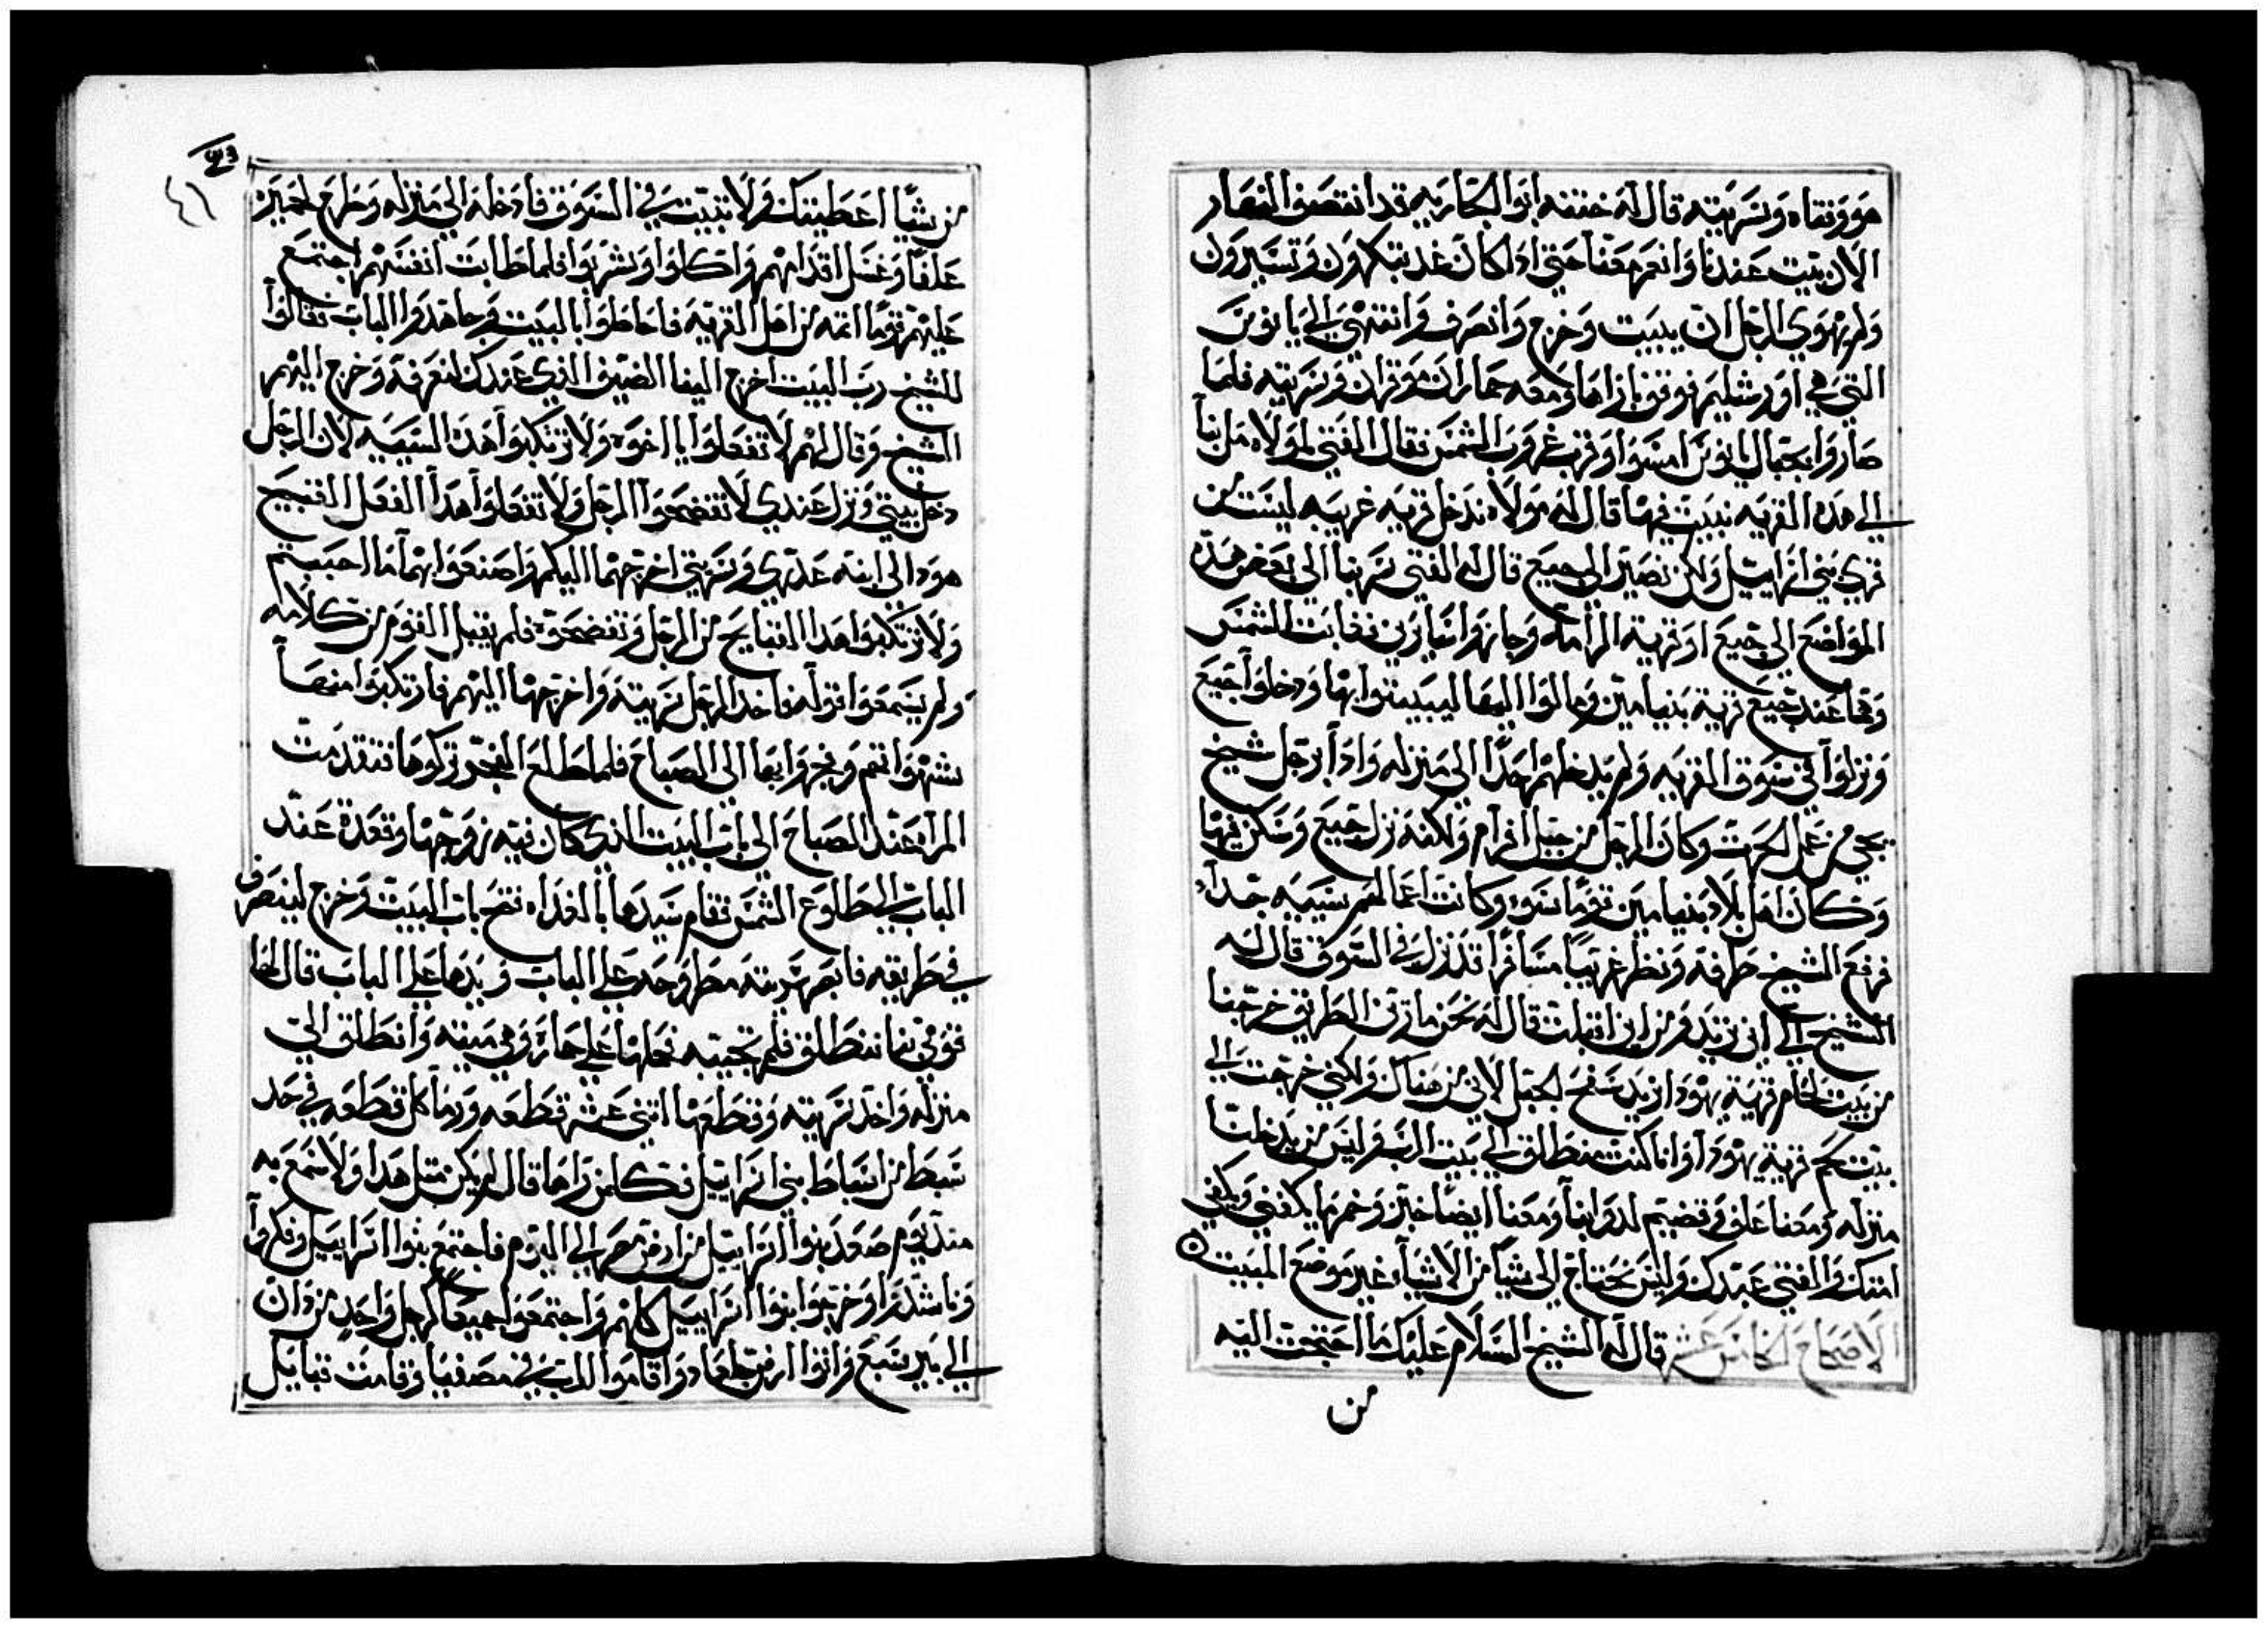 هو وفتاه وسريته قال له ختنه ابوا الجاريه قد انتصف النهار
الان بيت عندنا وانعم معنا حتى اذا كان غد تبكرون وتسيرون
ولم يهوي الرجل ان يبيت وخرج وانصرف وانتهى الي يابوس
التي هي اورشليم فوقف بازاها ومعه حماران موقران وسريته فلما
صاروا بجبال يابوس امسوا وقرب غروب الشمس فقال الفتى لمولاه مل بنا
الي هذه القريه نبيت فيها قال له مولاه ندخل قريه غريبه ليست من
قري بني اسراييل ولكن نصير الى جبع قال له الفتى سر بنا الى بعض هذه
المواضع الي جبع او قرية الرامه وجازوا سايرين فغابت الشمس
وهما عند جبع قرية بنيامين ومالوا اليها ليبيتوا بها ودخلوا جبع
ونزلوا في سوق القريه ولم يدخلهم احدا الى منزله واذا برجل شيخ
يجي من عمل الحرث وكان الرجل من جبل افرام ولكنه نزل جبع وسكن فيها
وكان اهل بلاد بنيامين قوما سوء وكانت اعمالهم سييه جدا
فرفع الشيخ طرفه ونظر غريبا مسافرا قد نزل في السوق قال له
الشيخ الي اين تريد ومن اين اقبلت قال له نحن مارين الطريق خرجنا
من بيت لحام قرية يهودا نريد سفح الجبل لاني من هناك ولكني خرجت الي
بيت لحم قرية يهودا وانا كنت منطلق الي بيت الرب وليس من يدخلنا
منزله ومعنا علف وقضيم لدوابنا ومعنا ايضا خبز وخمر ما يكفني ويكفي
امتك والفتى عبدك وليس نحتاج الى شيا من الاشيا غير موضع المبيت
الاصحاح الخامس عشر قال له الشيخ السلام عليك ما احتجت اليه
من
٤٦
من شيا اعطيتك ولا تبيت في السوق فادخله الي منزله وطرح لحميره
علفا وغسل اقدامهم واكلوا وشربوا فلما طابت انفسهم اجتمع
عليهم قوما اثمه من اهل القريه فاحاطوا بالبيت وجاهدوا الباب فقالوا
للشيخ رب البيت اخرج الينا الضيف الذي عندك لنعرفه وخرج اليهم
الشيخ وقال لهم لا تفعلوا يا اخوه ولا ترتكبوا هذه السييه لان الرجل
دخل بيتي ونزل عندي لا تفضحوا الرجل ولا تفعلوا هذا الفعل القبيح
هوذا لي ابنه عذري وسريتي اخرجهما اليكم واصنعوا بهما ما احببتم
ولا ترتكبوا هذا القبايح من الرجل وتفضحوه فلم يقبل القوم من كلامه
ولم يسمعوا قوله فاخذ الرجل سريته واخرجها اليهم فارتكبوا منها
شهواتهم وفجروا بها الى الصباح فلما طلع الفجر تركوها فتقدمت
المراه عند الصباح الى باب البيت الذي كان فيه زوجها وقعدة عند
الباب الي طلوع الشمس فقام سيدها بالغداه ففتح باب البيت وخرج لينصرف
في طريقه فابصر سريته مطروحه علي الباب ويدها علي الباب قال لها
قومي بنا ننطلق فلم تجيبه فحملها علي حماره وهي ميته وانطلق الي
منزله واخذ سريته وقطعها اثني عشر قطعه ورما كل قطعه في حد
سبط من اسباط بني اسراييل فكل من راها قال لم يكن مثل هذا ولا سمع به
منذ يوم صعد بنوا اسراييل من ارض مصر الي اليوم فاجتمع بنوا اسراييل وفكروا
وتاشدروا وخرجوا بنوا اسراييل كلهم واجتمعوا جميعا كرجل واحد من دان
الي بير سبع واتوا ارض جلعاد واقاموا للرب في مصفيا وقامت قبايل